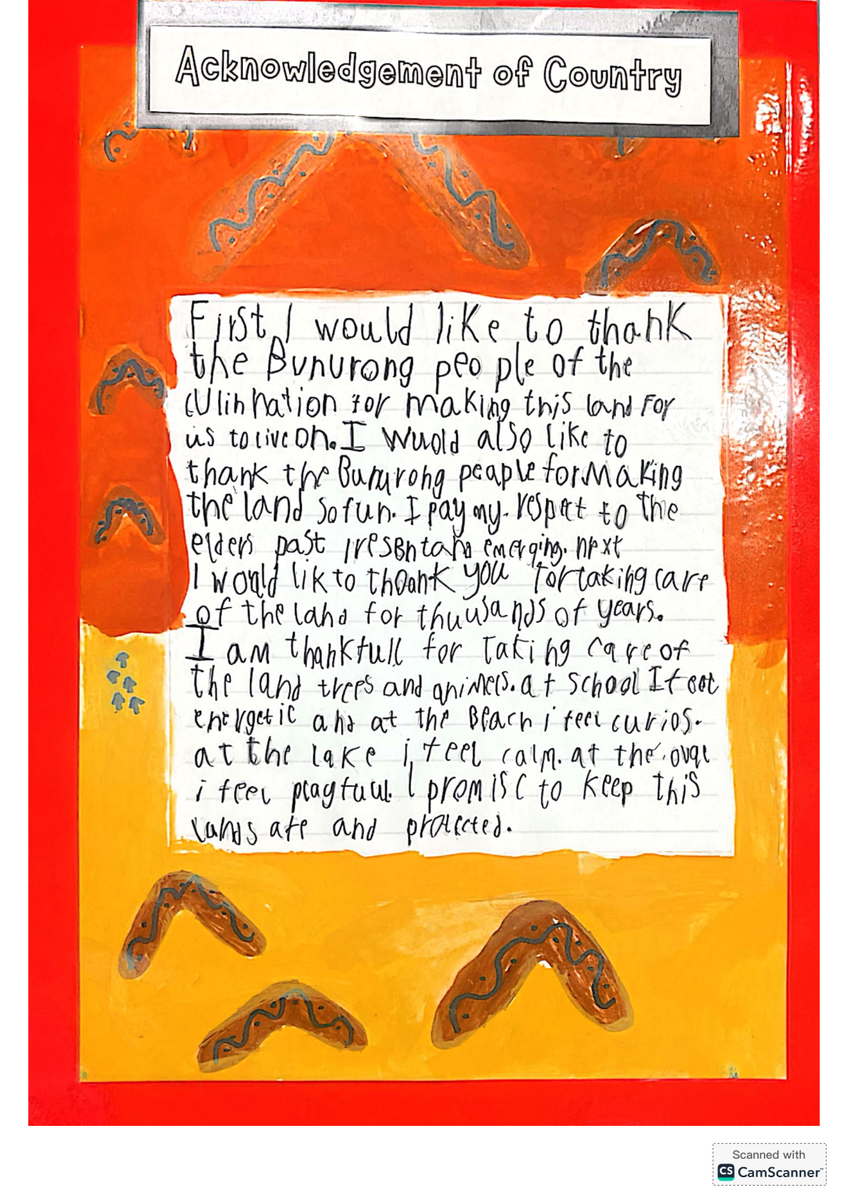 Acknowledgement of Country
First I would like to thank
the Bunurong peo ple of the
culin Nation for making this land For
us to live on. I wuold also like to
thank the Bunurong peaple for making
the land so fun. I pay my. respect to the
elders past present and emerging. next
I would lik to thoank you for taking care
of the land for thuusands of years.
I am thankfull for taking care of
the land trees and animels. at school I feel
energetic and at the Beach i feel curios.
at the lake i feel calm. at the oval
i feel playfuul. I promise to keep this
land safe and protected.
Scanned with
CS CamScanner